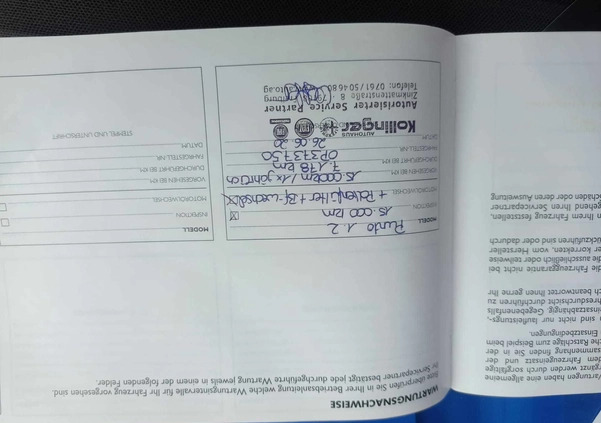 WARTUNGSNACHWEISE
Bitte überprüfen Sie in Ihrer Betriebsanleitung welche Wartungsintervalle für Ihr Fahrzeug vorgesehen sind.
Ihr Servicepartner bestätigt jede durchgeführte Wartung jeweils in einem der folgenden Felder.
MODELL
Punto 1.2
INSPEKTION
15.000 km
MOTORÖLWECHSEL
+ Pollenfilter + Bf-wechsel
VORGESEHEN BEI KM
15.000km / 1x jährlich
DURCHGEFÜHRT BEI KM
7.178 km
FAHRGESTELL-NR.
0P373750
DATUM
26.06.20
AUTOHAUS
Kollinger
Autorisierter Service Partner
Zinkmattenstraße 8 Freiburg
Telefon: 0761/504680
auto.ag
MODELL
INSPEKTION
MOTORÖLWECHSEL
VORGESEHEN BEI KM
DURCHGEFÜHRT BEI KM
FAHRGESTELL-NR.
DATUM
STEMPEL UND UNTERSCHRIFT
Wartungen haben eine allgemeine
ergänzt werden durch sorgfältige
dem Fahrzeugeinsatz und der
sammenhang finden Sie in der
che Ratschläge zum Beispiel beim
Einsatzbedingungen.
n sind nicht nur laufleistungs-,
einsatzabhängig. Gegebenenfalls
hresdurchsicht durchführen zu
ch beantwortet Ihnen gerne Ihr
die Fahrzeuggarantie nicht bei
die ausschließlich oder teilweise
r korrekten, vom Hersteller
rückzuführen sind oder dadurch
n Ihrem Fahrzeug feststellen,
gehend Ihren Servicepartner
chäden oder deren Ausweitung